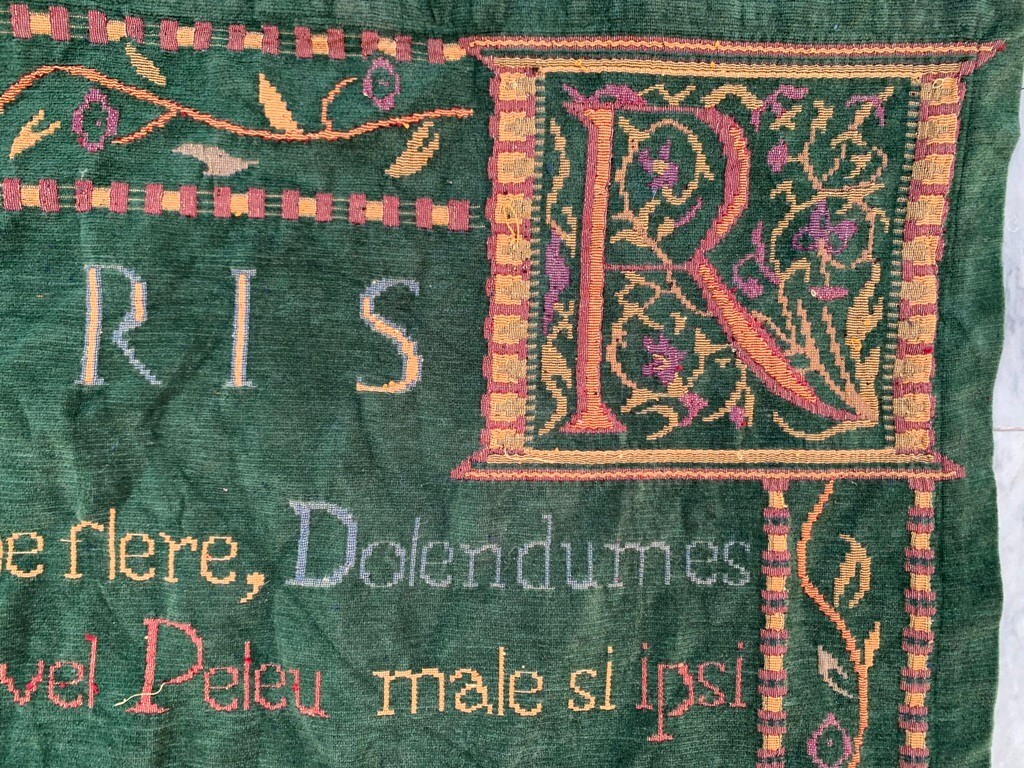 RIS R
e flere, Dolendumes
vel Peleu male si ipsi